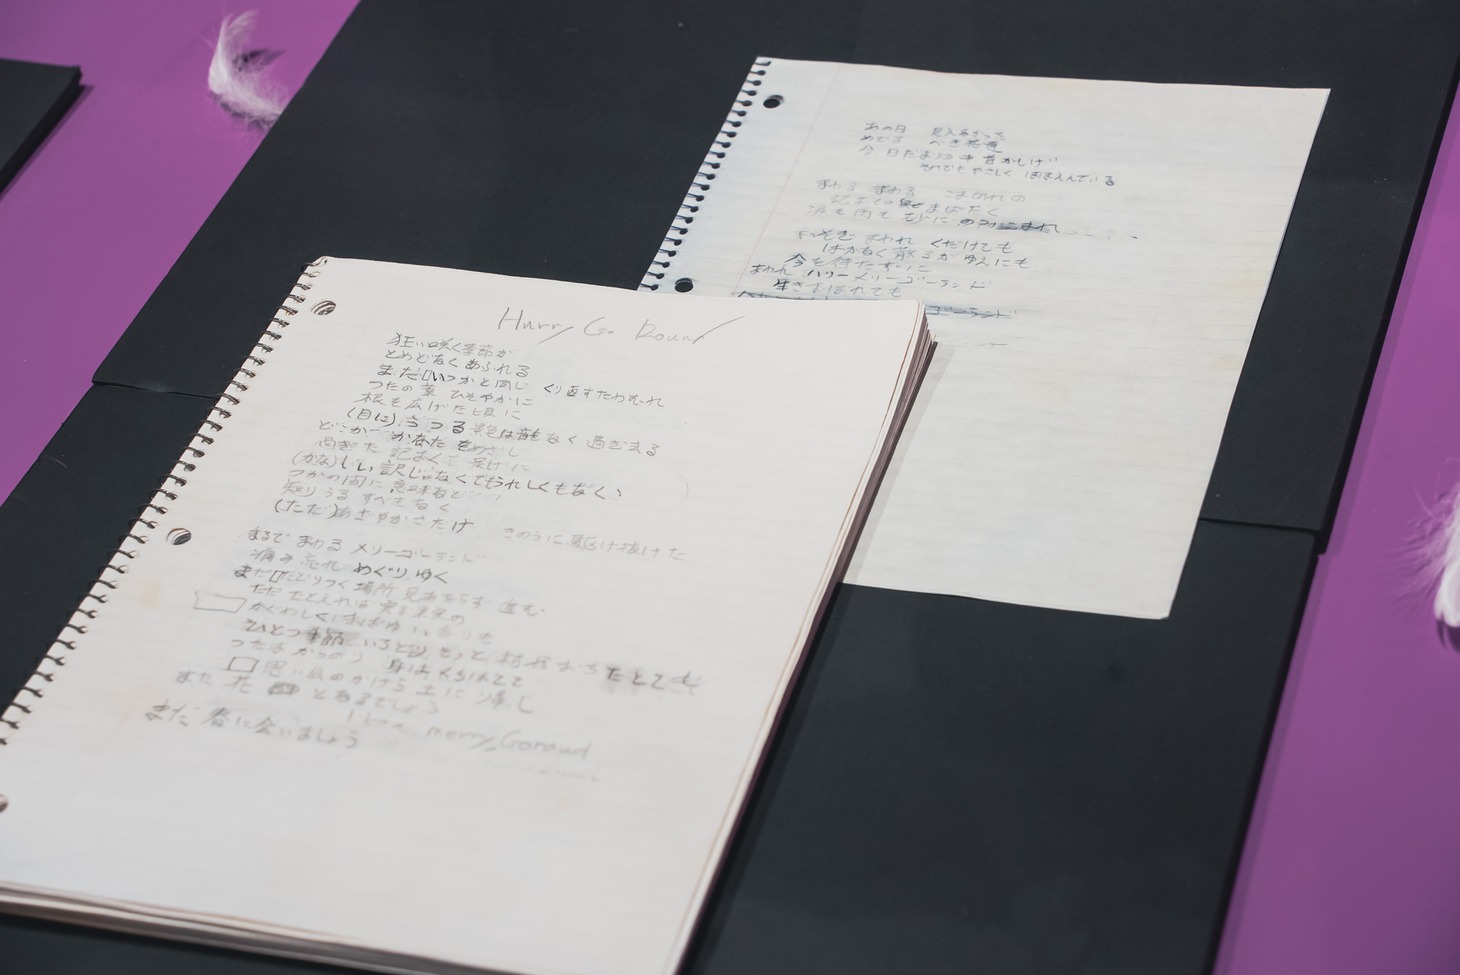 Hurry Go Round
狂い咲く季節が
とめどなくあふれる
まだいつかと同じ くり返すたわむれ
つたの葉 ひそやかに
根を広げた頃に
(目に)うつる景色は音もなく過ぎ去る
どこか かなたをめざし
過ぎた記おく
(かな)しい訳じゃなくてうれしくもなく、
つかの間に意味など
知りうる すべもなく
(ただ)あざやかさだけ きのうに駆け抜けた
まるで まわる メリーゴーランド
痛み忘れ めぐりゆく
まだたどりつく場所 見当たらず 進む
ただ たとえれば 実る果実の
かぐわしく まばゆいかりも
ひとつ季節 いろどり そっと 枯れおちたとて
つたはからまり 身はくちはてて
思い出のかけら 土に帰し
また 花 となるでしょう
Like a merry Goround
また 春に会いましょう
あの日 見えなかった
めでる べき花道
今、日だまりの中 昔かしげ
それでもやさしく ほほえんでいる
まわる まわる こまぎれの
記おくの またたく
涙も雨も
いそぎ まわれ くだけても
はかなく散るがゆえにも
今を待たずに
まわれ ハリーメリーゴーランド
生きさばれても
ゴーランド